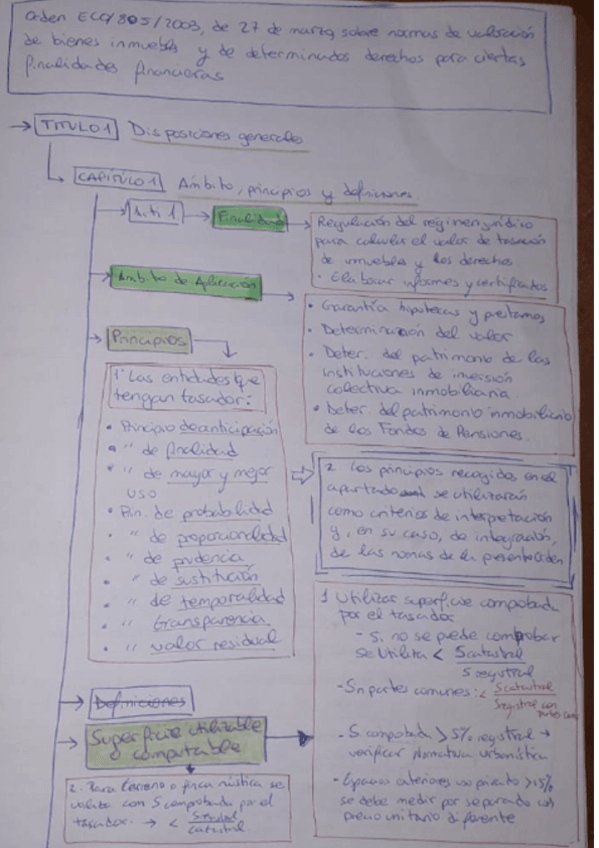 Orden ECO/805/2003, de 27 de marzo, sobre normas de valoración
de bienes inmuebles y de determinados derechos para ciertas
finalidades financieras
→ TITULO 1 Disposiciones generales
CAPÍTULO 1 Ámbito, principios y definiciones
Art. 1 → Finalidad →
Regulación del régimen jurídico
para calcular el valor de tasación
de inmuebles y los derechos
· Elaborar informes y certificados
Ámbito de Aplicación
• Garantía hipotecas y prestamos
• Determinación del valor
• Deter. del patrimonio de las
instituciones de inversión
colectiva inmobiliaria.
• Deter. del patrimonio inmobiliario
de los Fondos de Pensiones.
Principios
1. Las entidades que
tengan tasador:
• Principio de anticipación
• " de finalidad
• " de mayor y mejor
uso
• Prin. de probabilidad
• " de proporcionalidad
• " de prudencia
• " de sustitución
• " de temporalidad
• " transparencia
• " valor residual
2. Los principios recogidos en el
apartado se utilizarán
como criterios de interpretación
y, en su caso, de integración,
de las normas de la presente orden
Definiciones
Superficie utilizable
o computable
1 Utilizar superficie comprobada
por el tasador
- Si no se puede comprobar
se utiliza < S catastral
S registral
- Sn partes comunes: < S catastral
S registral con
partes com
• S comprobada > 5% registral →
verificar normativa urbanística
• Espacios exteriores uso privado > 15%
se debe medir por separado con
precio unitario diferente
2. Para terreno o finca rústica se
valora con S comprobada por el
tasador. → < S registral
catastral